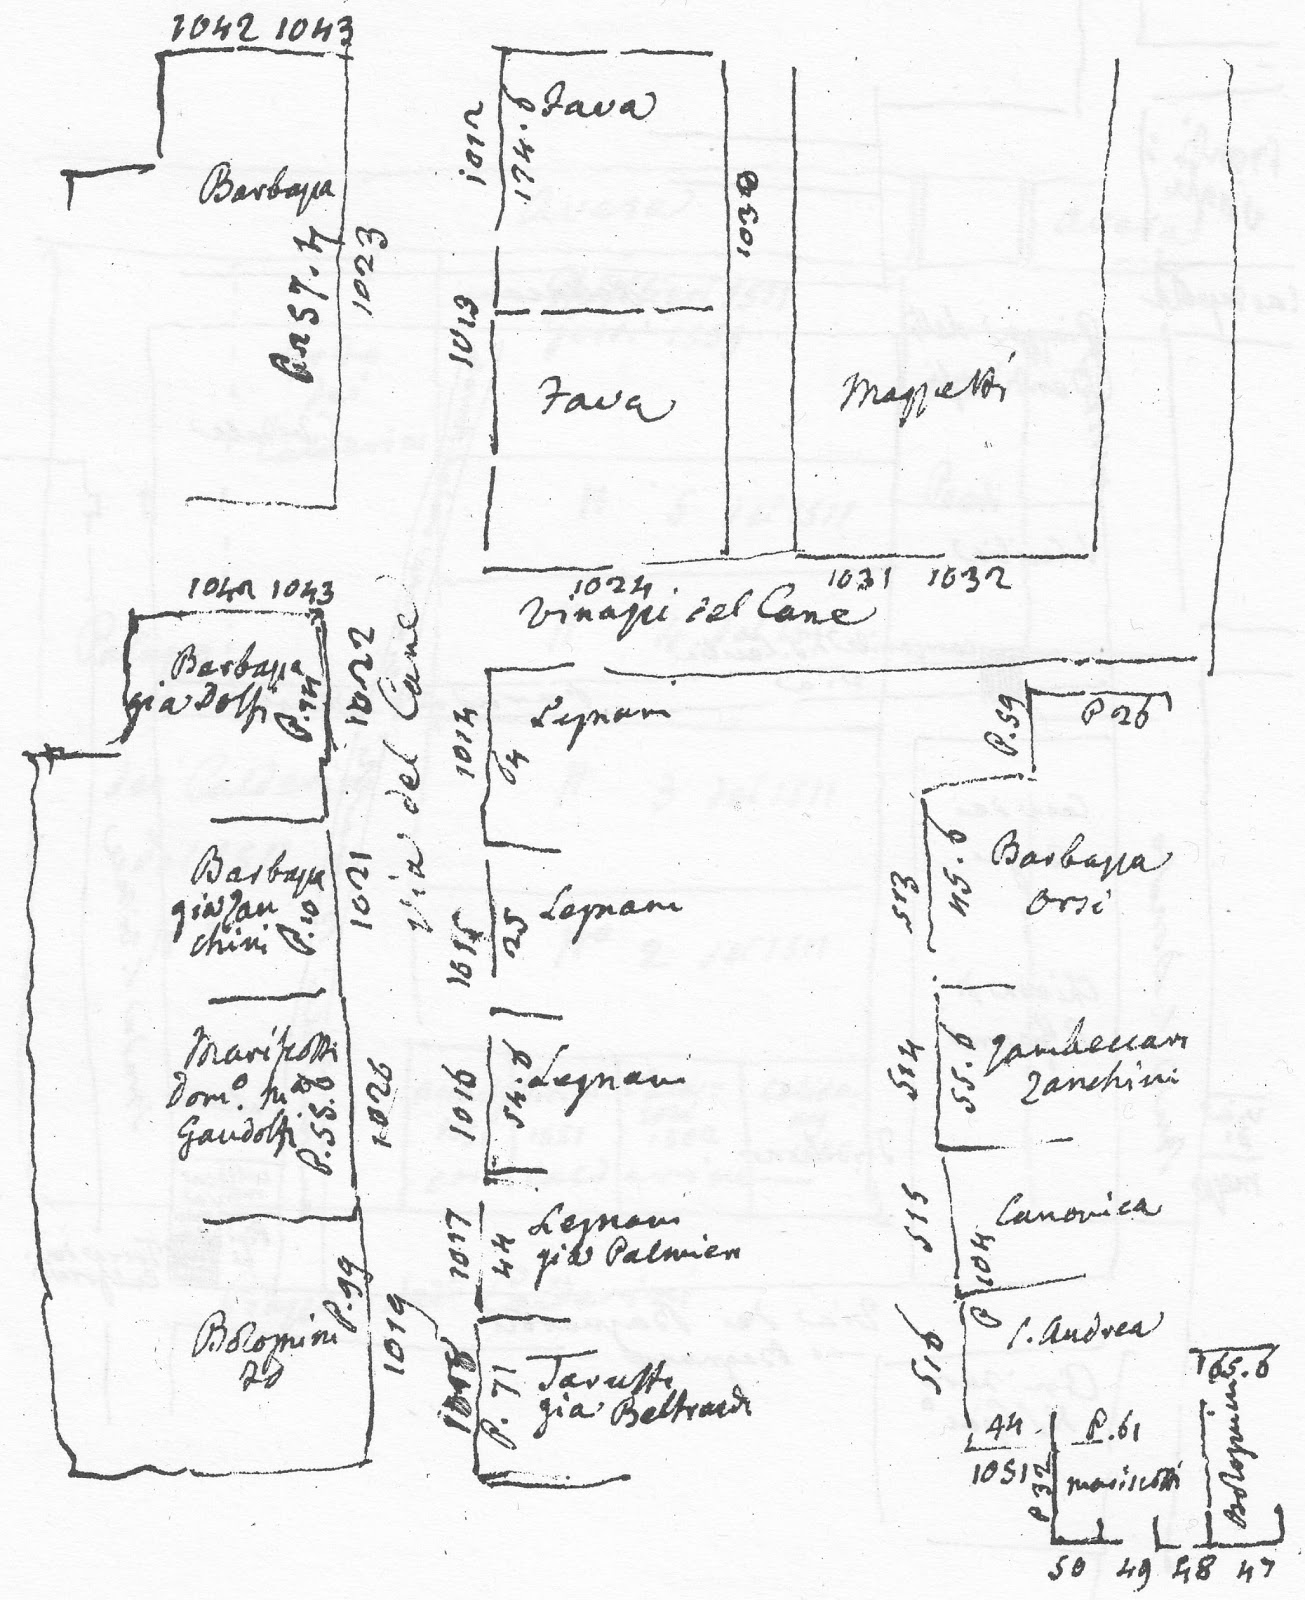 1042 1043
Barbazza
1023
1012
174.6
Fava
1013
Fava
1030
Mazzetti
1024
1031 1032
Vinazzi del Cane
1042 1043
Barbazza
gia Dolfi
P.74
1022
Via del Cane
1014
64
Legnani
P.59
P 26
Barbazza
gia Zan
chini P.10
1021
1015
25
Legnani
513
45.6
Barbazza
Orsi
Mariscotti
Dom.o
Gandolfi
P.55.6
1026
1016
54.6
Legnani
514
55.6
Zambeccari
Zanchini
1017
44
Legnani
gia Palmieri
515
Canonica
P 104
Bolognini
P.99
1019
P. 71
Tarussi
gia Beltrandi
516
S. Andrea
65.6
Bolognini
44
P.61
1051
P 32
mariscotti
50 49 48 47